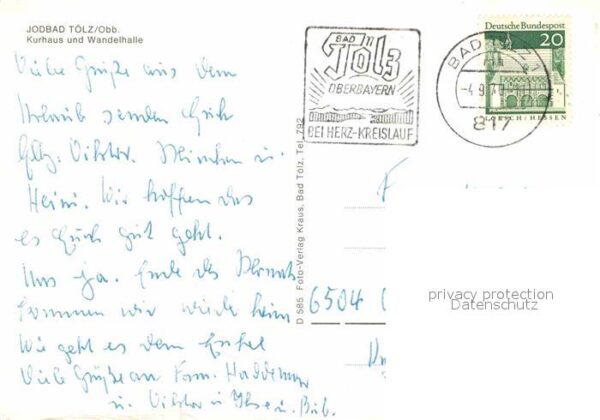 JODBAD TÖLZ/Obb.
Kurhaus und Wandelhalle
Viele Grüße aus dem
Urlaub senden Euch
Viktor. München u.
Heini. Wir hoffen das
es Euch gut geht.
Uns ja. Ende des Monats
kommen wir wieder heim
Wie geht es dem Enkel
Viele Grüße an Fam.
u. Viktor u. Ilse u.
BAD
Tölz
OBERBAYERN
BEI HERZ-KREISLAUF
BAD TÖLZ 1
-4.9.70
817
Deutsche Bundespost
20
LORSCH/HESSEN
D 585 Foto-Verlag Kraus, Bad Tölz, Tel. 792
6504
privacy protection
Datenschutz